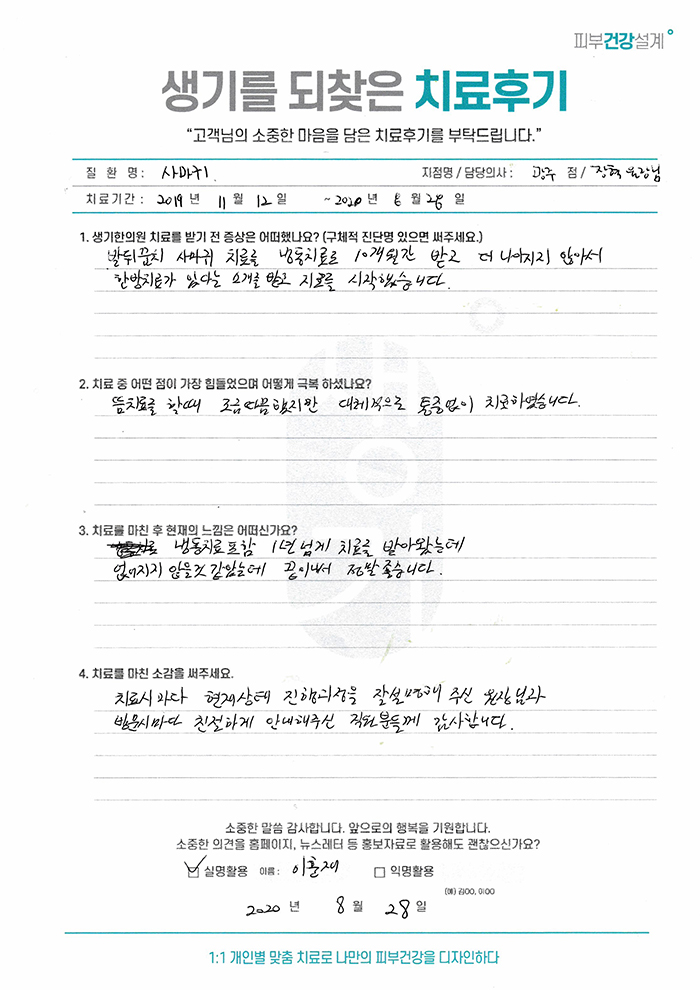 피부건강설계
생기를 되찾은 치료후기
“고객님의 소중한 마음을 담은 치료후기를 부탁드립니다.”
질 환 명 : 사마귀 지점명 / 담당의사 : 광주 점 / 장혁 원장님
치료기간 : 2019 년 11 월 12 일 ~ 2020 년 8 월 28 일
1. 생기한의원 치료를 받기 전 증상은 어떠했나요? (구체적 진단명 있으면 써주세요.)
발뒤꿈치 사마귀 치료를 냉동치료로 10개월간 받고 더 나아지지 않아서
한방치료가 있다는 소개를 받고 치료를 시작했습니다.
2. 치료 중 어떤 점이 가장 힘들었으며 어떻게 극복 하셨나요?
뜸치료를 할때 조금 따끔했지만 대체적으로 통증없이 치료하였습니다.
3. 치료를 마친 후 현재의 느낌은 어떠신가요?
냉동치료포함 1년넘게 치료를 받아왔는데
없어지지 않을것 같았는데 끝이나서 정말 좋습니다.
4. 치료를 마친 소감을 써주세요.
치료시마다 현재상태 진행과정을 잘설명해 주신 원장님과
방문시마다 친절하게 안내해주신 직원분들께 감사합니다.
소중한 말씀 감사합니다. 앞으로의 행복을 기원합니다.
소중한 의견을 홈페이지, 뉴스레터 등 홍보자료로 활용해도 괜찮으신가요?
실명활용 이름 : 이훈재 익명활용
(예) 김OO, 이OO
2020 년 8 월 28 일
1:1 개인별 맞춤 치료로 나만의 피부건강을 디자인하다